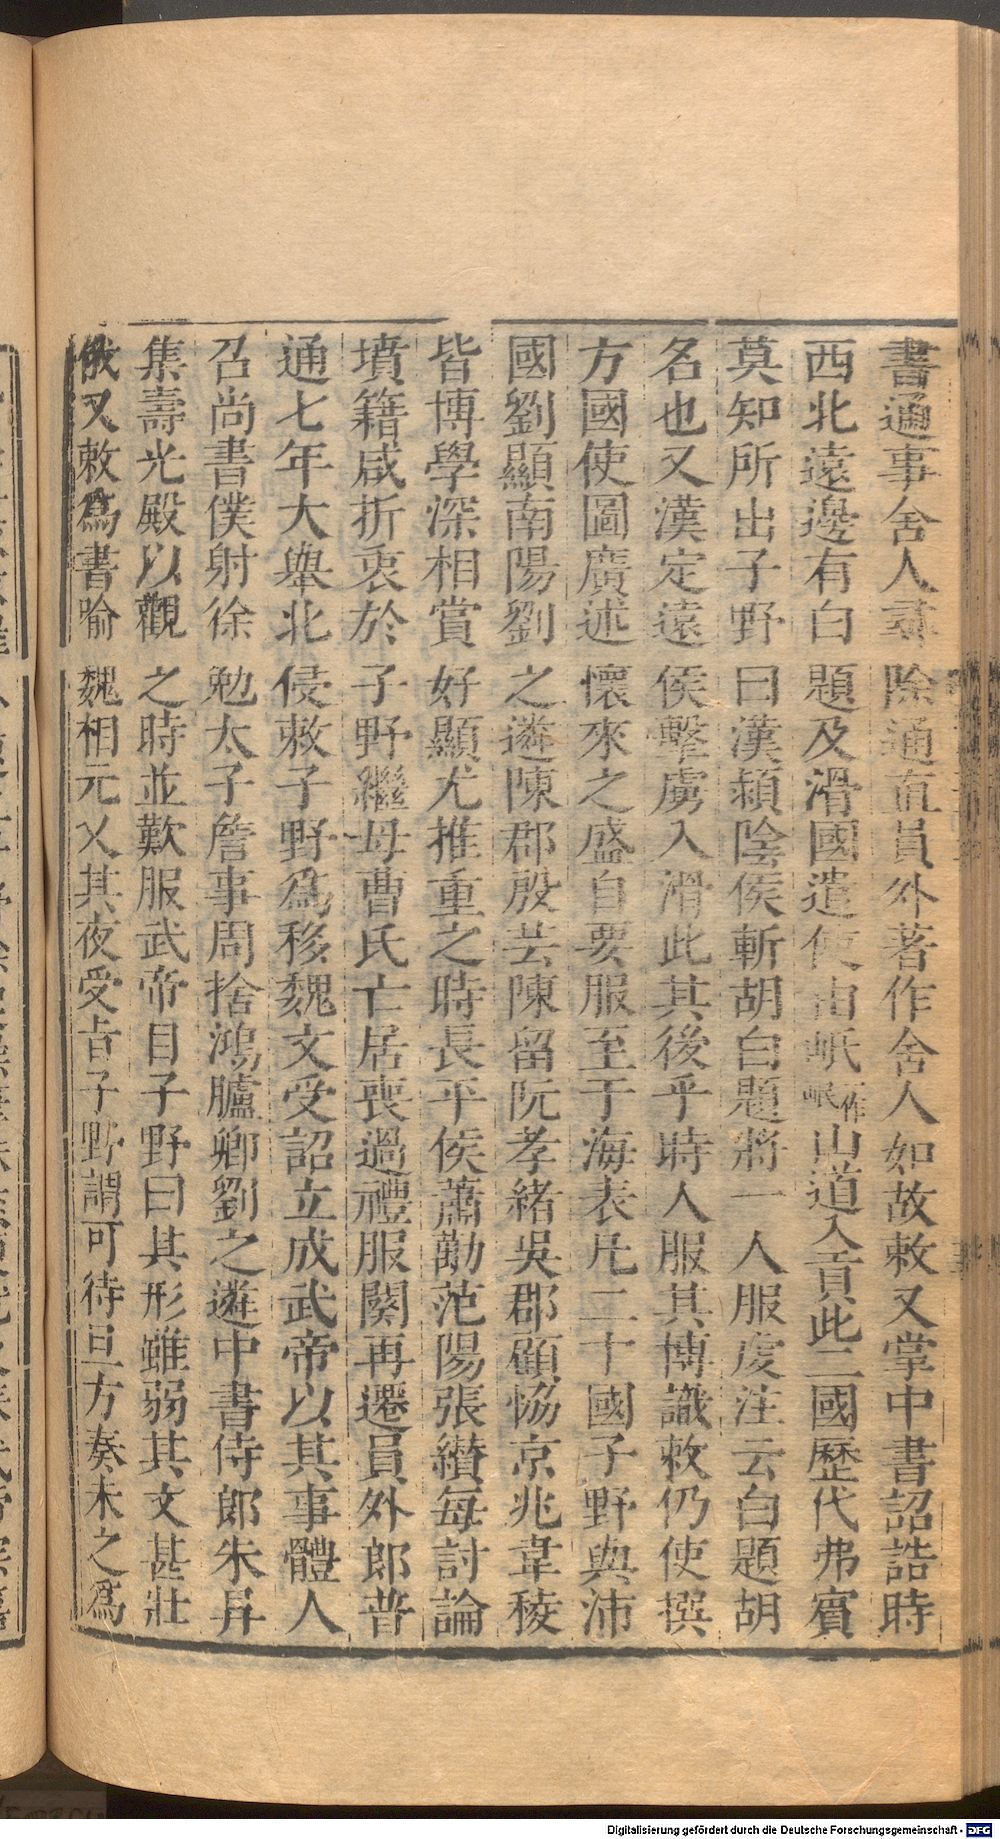 書通事舍人尋除通直員外著作舍人如故敕又掌中書詔誥時
西北遠邊有白題及滑國遣使由岷山道入貢此二國歷代弗賓
莫知所出子野曰漢潁陰侯斬胡白題將一人服虔注云白題胡
名也又漢定遠侯擊虜入滑此其後乎時人服其博識敕仍使撰
方國使圖廣述懷來之盛自要服至于海表凡二十國子野與沛
國劉顯南陽劉之遴陳郡殷芸陳留阮孝緒吳郡顧恊京兆韋稜
皆博學深相賞好顯尤推重之時長平侯蕭勱范陽張纘每討論
墳籍咸折衷於子野繼母曹氏亡居喪過禮服闋再遷員外郎普
通七年大舉北侵敕子野爲移魏文受詔立成武帝以其事體人
召尚書僕射徐勉太子詹事周捨鴻臚卿劉之遴中書侍郎朱异
集壽光殿以觀之時並歎服武帝目子野曰其形雖弱其文甚壯
俄又敕爲書喻魏相元乂其夜受旨子野謂可待旦方奏未之爲
Digitalisierung gefördert durch die Deutsche Forschungsgemeinschaft - DFG